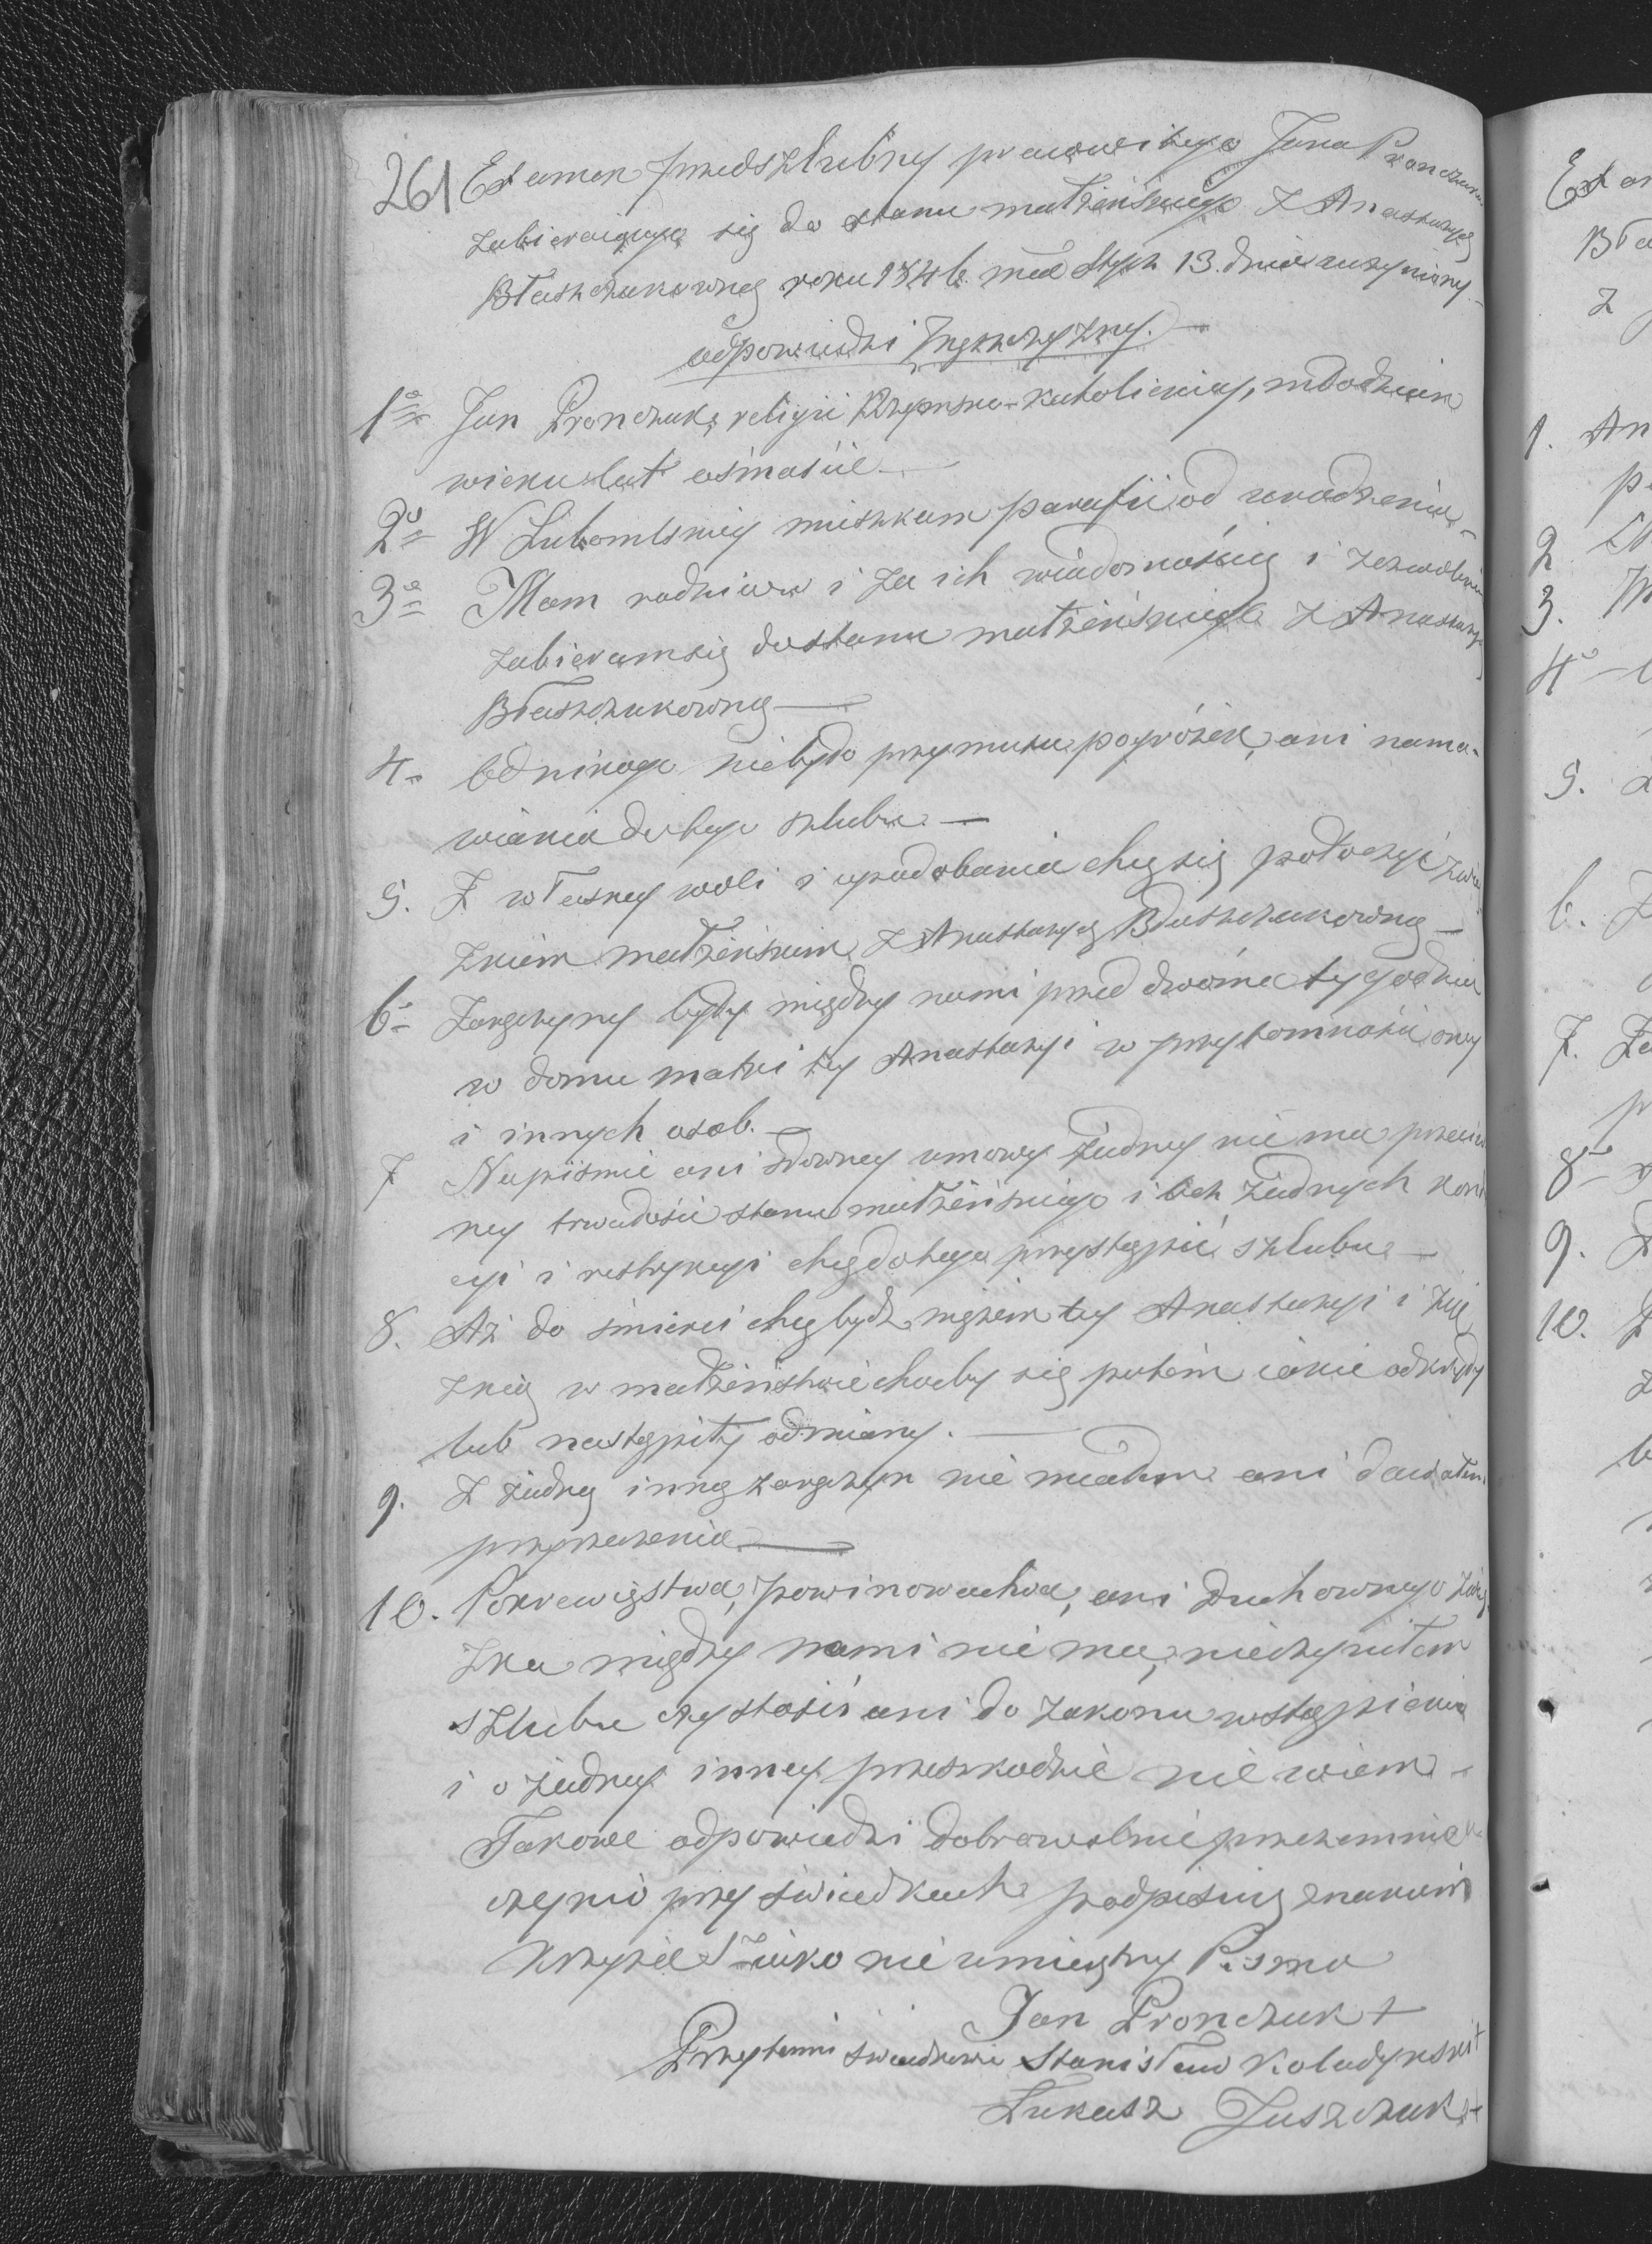 261 Examen przedszlubny pracowitego Jana Pronczuka
zabieraiącego się do stanu małżeńskiego z Anastazyą
Błaszczukowną roku 1846 mca Stycz 13. dnia uczyniony
odpowiedzi Męszczyzny.
1o Jan Pronczuk, religii Rzymsko-Katolickiey, młodzian
wieku lat ośmaście
2o W Lubomlskiey mieszkam parafii od urodzenia
3o Mam rodziców i za ich wiadomością i zezwoleniem
zabieram się do stanu małżeńskiego z Anastazyą
Błaszczukowną
4o Od nikogo niebyło przymusu pogróżek, ani nama-
wiania do tego szlubu
5. Z własney woli i upodobania chcę się połączyć związ
zkiem małżeńskim z Anastazyą Błaszczukowną
6o Zaręczyny były między nami przed dwóma tygodnia
w domu matki tey Anastazyi w przytomności oney
i innych osob.
7 Napiśmie ani słowney umowy żadney nie ma przeciw
ney trwałości stanu małżeńskiego i bez żadnych kondi
cyi i restrykcyi chcę do tego przystąpić szlubu
8. Aż do śmierci chcę bydź mężem tey Anastazyi i żyć
z nią w małżeństwie choćby się potém iakie odkryły
lub nastąpiły odmiany.
9. Z żadną inną zaręczyn nie miałem ani dawałem
przyrzeczenia
10. Pokrewięstwa, powinowactwa, ani Duchownego zwią
zku między nami nie ma, nieczyniłem
szlubu czystości ani do zakonu wstąpienia
i o żadney inney przeszkodzie nie wiem
Takowe odpowiedzi dobrowolnie przezemnie
czynio przy świadkach podpisuię znakiem
Krzyża S iako nie umieiętny Pisma
Jan Pronczuk +
Przytomni świadkowie Stanisław Koladynski +
Łukasz Juszczuk +
Exa
Bła
z
1. An
p
2
3. M
4o
5.
6. Z
7. Za
p
8o
9. Z
10.